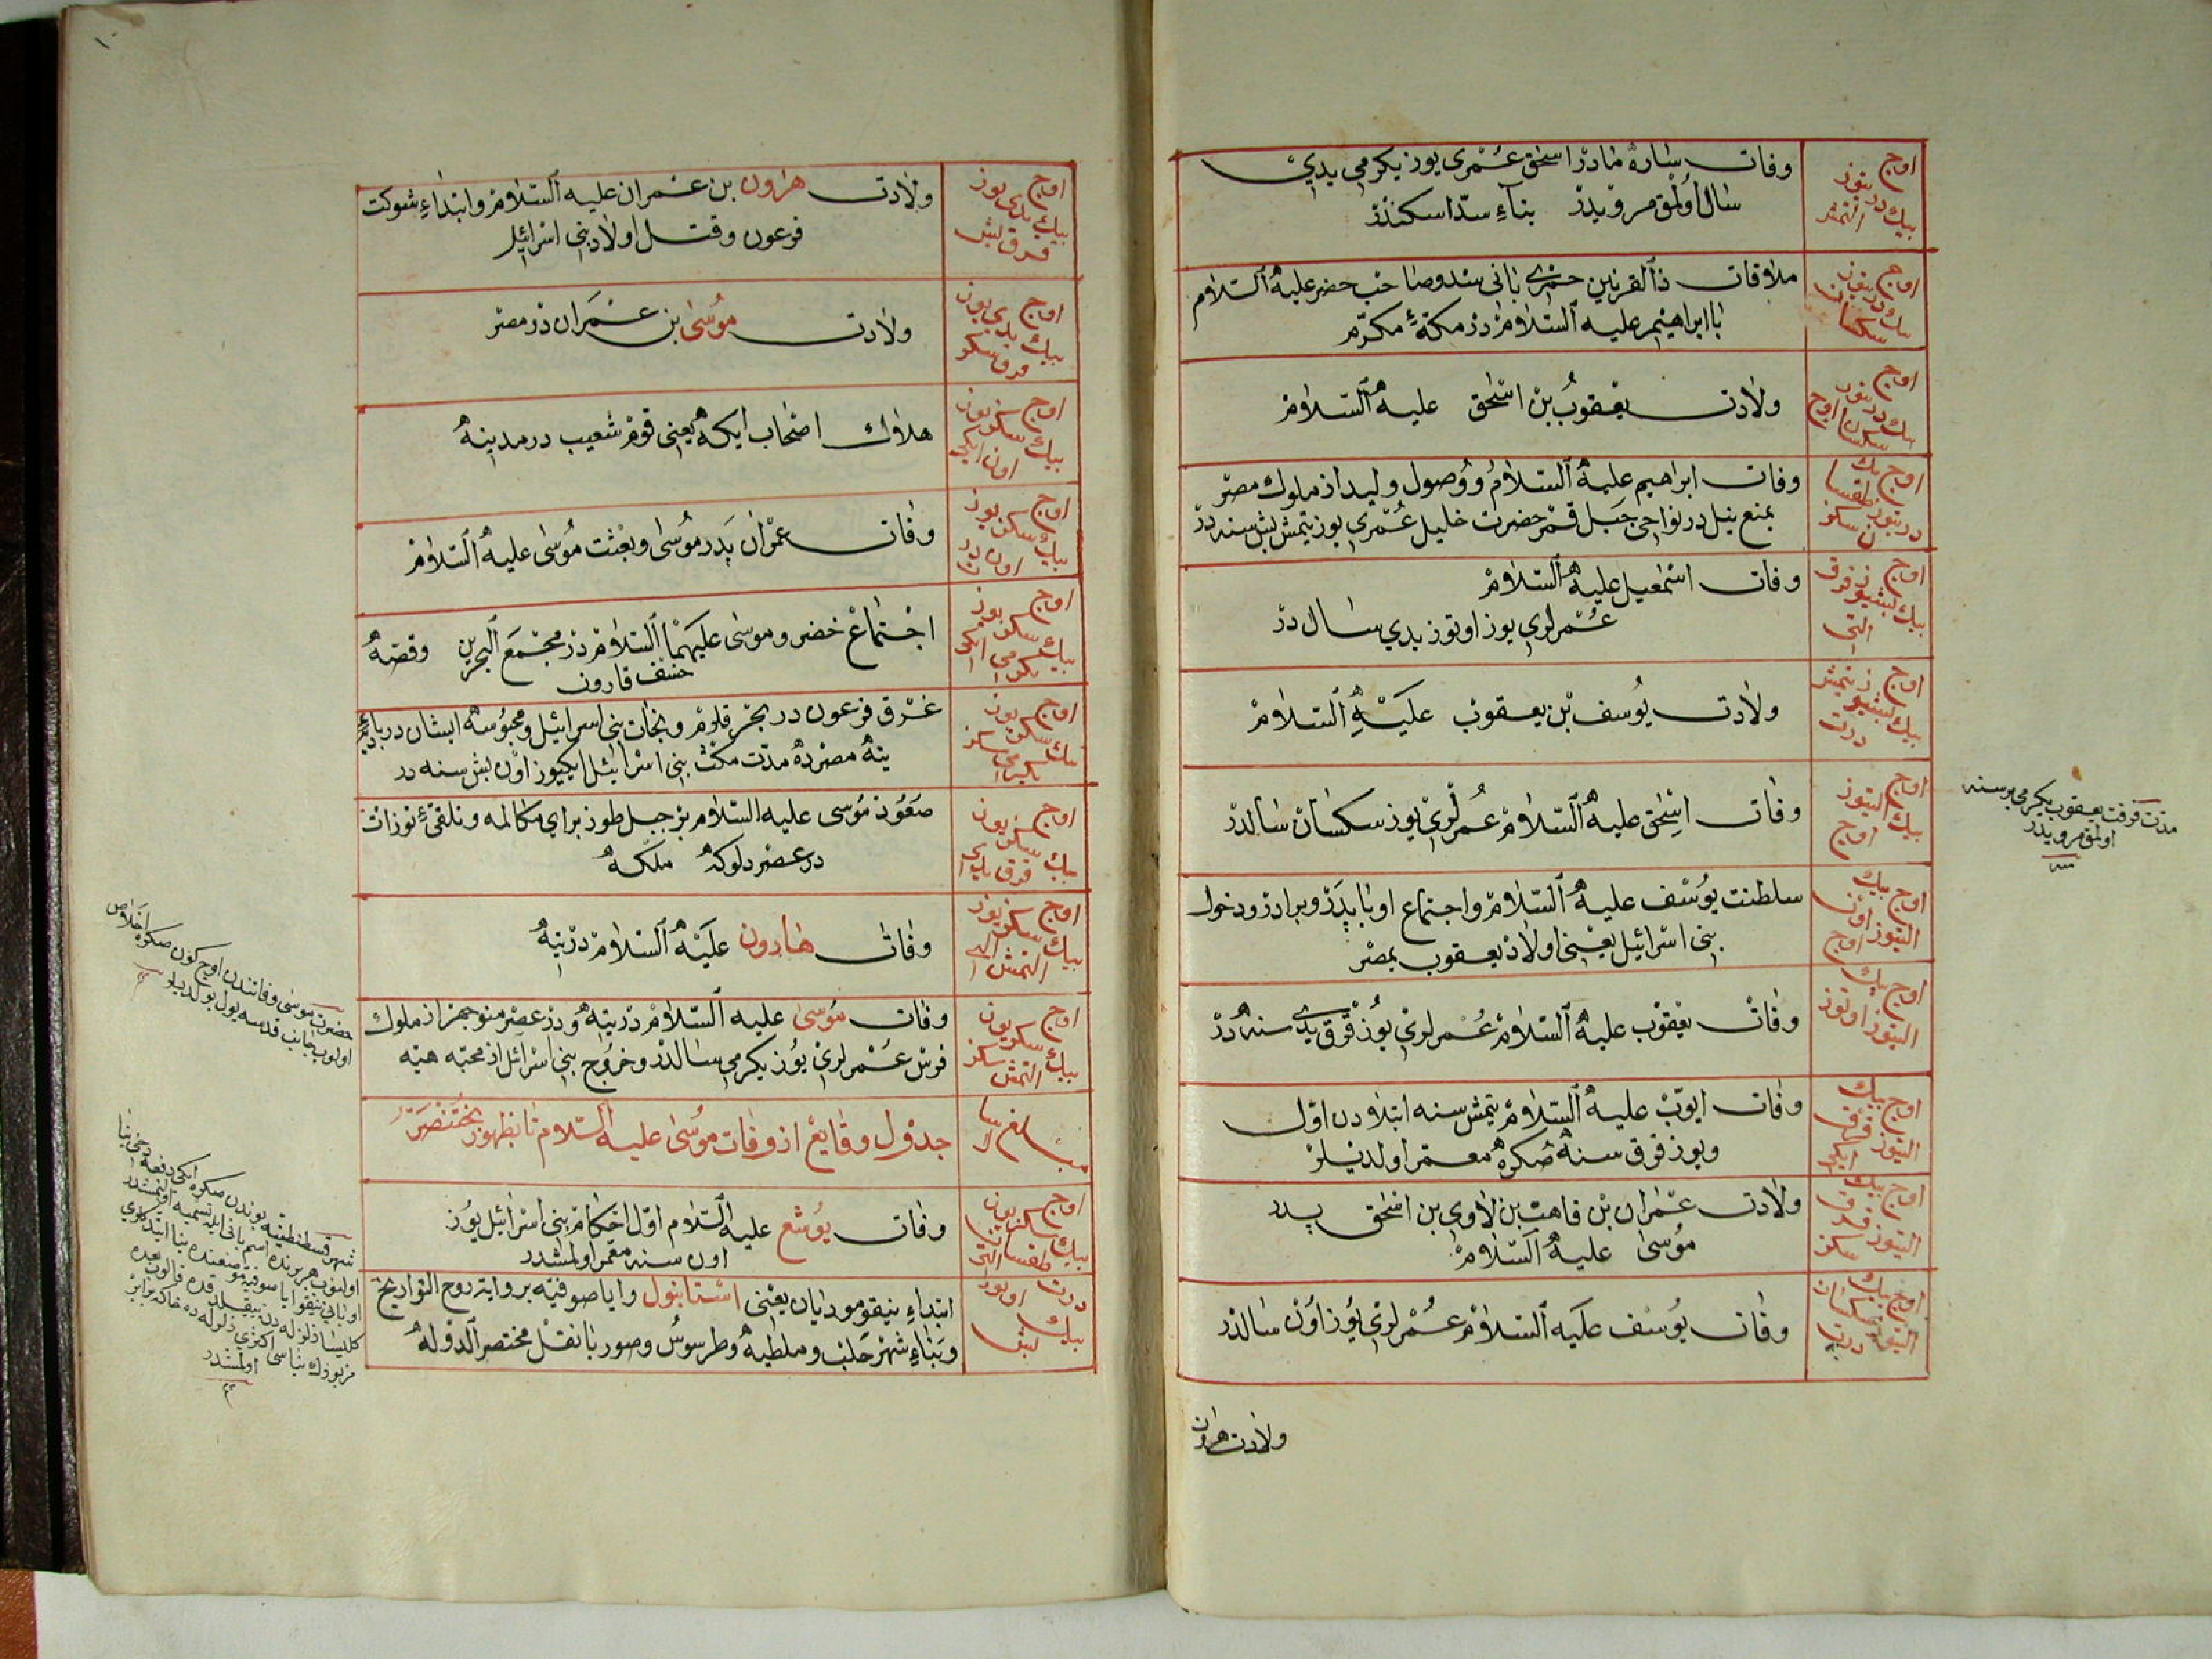 اوج
بيك درتيوز
التمش
وفات ساره مادر اسحق عمرى يوز يكرمى يدى
سال اولمق مرويدر بناء سد اسكندر
اوج
بيك درتيوز
سكسان
ملاقات ذالقرنين حميرى بانى سد وصاحب خضر عليه السلام
با ابراهيم عليه السلام در مكهٔ مكرم
اوج
بيك درتيوز
سكسان اوج
ولادت يعقوب بن اسحق عليه السلام
اوج بيك
درتيوز طقسا
ن سكز
وفات ابراهيم عليه السلام ووصول وليد از ملوك مصر
بمنع نيل در نواحى جبل قمر حضرت خليل عمرى يوز يتمش بش سنه در
اوج
بيك بشيوز قرق
التى
وفات اسمعيل عليه السلام
عمرلرى يوز اوتوز يدى سال در
اوج
بيك بشيوز يتمش
درت
ولادت يوسف بن يعقوب عليه السلام
اوج
بيك التيوز
اوج
وفات اسحق عليه السلام عمرلرى يوز سكسان سالدر
مدت فرقت يعقوب يكرمى بر سنه
اولمق مرويدر
منه
اوج بيك
التيوز اون
اوج
سلطنت يوسف عليه السلام واجتماع او با پدر وبرادر ودخول
بنى اسرائيل يعنى اولاد يعقوب بمصر
اوج بيك
التيوز اوتوز
وفات يعقوب عليه السلام عمرلرى يوز قرق يدى سنه در
اوج بيك
التيوز قرق
ايكى
وفات ايوب عليه السلام يتمش سنه ابتلادن اول
ويوز قرق سنه صكره معمر اولديلر
اوج بيك
التيوز قرق
سكز
ولادت عمران بن قاهت بن لاوى بن اسحق پدر
موسى عليه السلام
اوج بيك
التيوز سكسان
درت
وفات يوسف عليه السلام عمرلرى يوز اون سالدر
ولادت هرون
اوج
بيك يدى يوز
قرق بش
ولادت هرون بن عمران عليه السلام وابتداء شوكت
فرعون وقتل اولاد بنى اسرائيل
اوج
بيك يدى يوز
قرق سكز
ولادت موسى بن عمران در مصر
اوج
بيك سكز يوز
اون ايكى
هلاك اصحاب ايكه يعنى قوم شعيب در مدينه
اوج
بيك سكز يوز
اون در
ت
وفات عمران پدر موسى وبعثت موسى عليه السلام
اوج
بيك سكز يوز
يكرمى ايكى
اجتماع خضر وموسى عليهما السلام در مجمع البحرين وقصه
خسف قارون
اوج
بيك سكز يوز
يكرمى سكز
غرق فرعون در بحر قلزم ونجات بنى اسرائيل ومحبوسه ايشان در باديه
تيه مصرده مدت مكث بنى اسرائيل ايكيوز اون بش سنه در
اوج
بيك سكز يوز
قرق يدى
صعود موسى عليه السلام بر جبل طور براى مكالمه وتلقئ تورات
در عصر دلوكه ملكه
اوج
بيك سكز يوز
التمش التى
وفات هارون عليه السلام در تيه
اوج
بيك سكز يوز
التمش سكز
وفات موسى عليه السلام در تيه ودر عصر منوجهر از ملوك
فرس عمرلرى يوز يكرمى سالدر وخروج بنى اسرائيل از محبه هيه
حضرت موسى وفاتندن اوج كون صكره اخلاص
اولوب جانب قدسه يول بولديلر
جدول وقايع از وفات موسى عليه السلام تا بظهور بختنصر
اوج
بيك سكز يوز
طقسان التى
وفات يوشع عليه السلام اول احكام بنى اسرائيل يوز
اون سنه معمر اولمشدر
درت
بيك اوتوز
بش
ابتداء نيقومودايان يعنى استانبول واياصوفيه بروايت روح التواريخ
وبناء شهر حلب وملطيه وطرسوس وصور با نقل مختصر الدوله
شهر قسطنطنيه بوندن صكره ايكى دفعه دخى بنا
اولنوب هر برنده اسم بانى ايله تسميه اولنمشدر
اولنمشدر